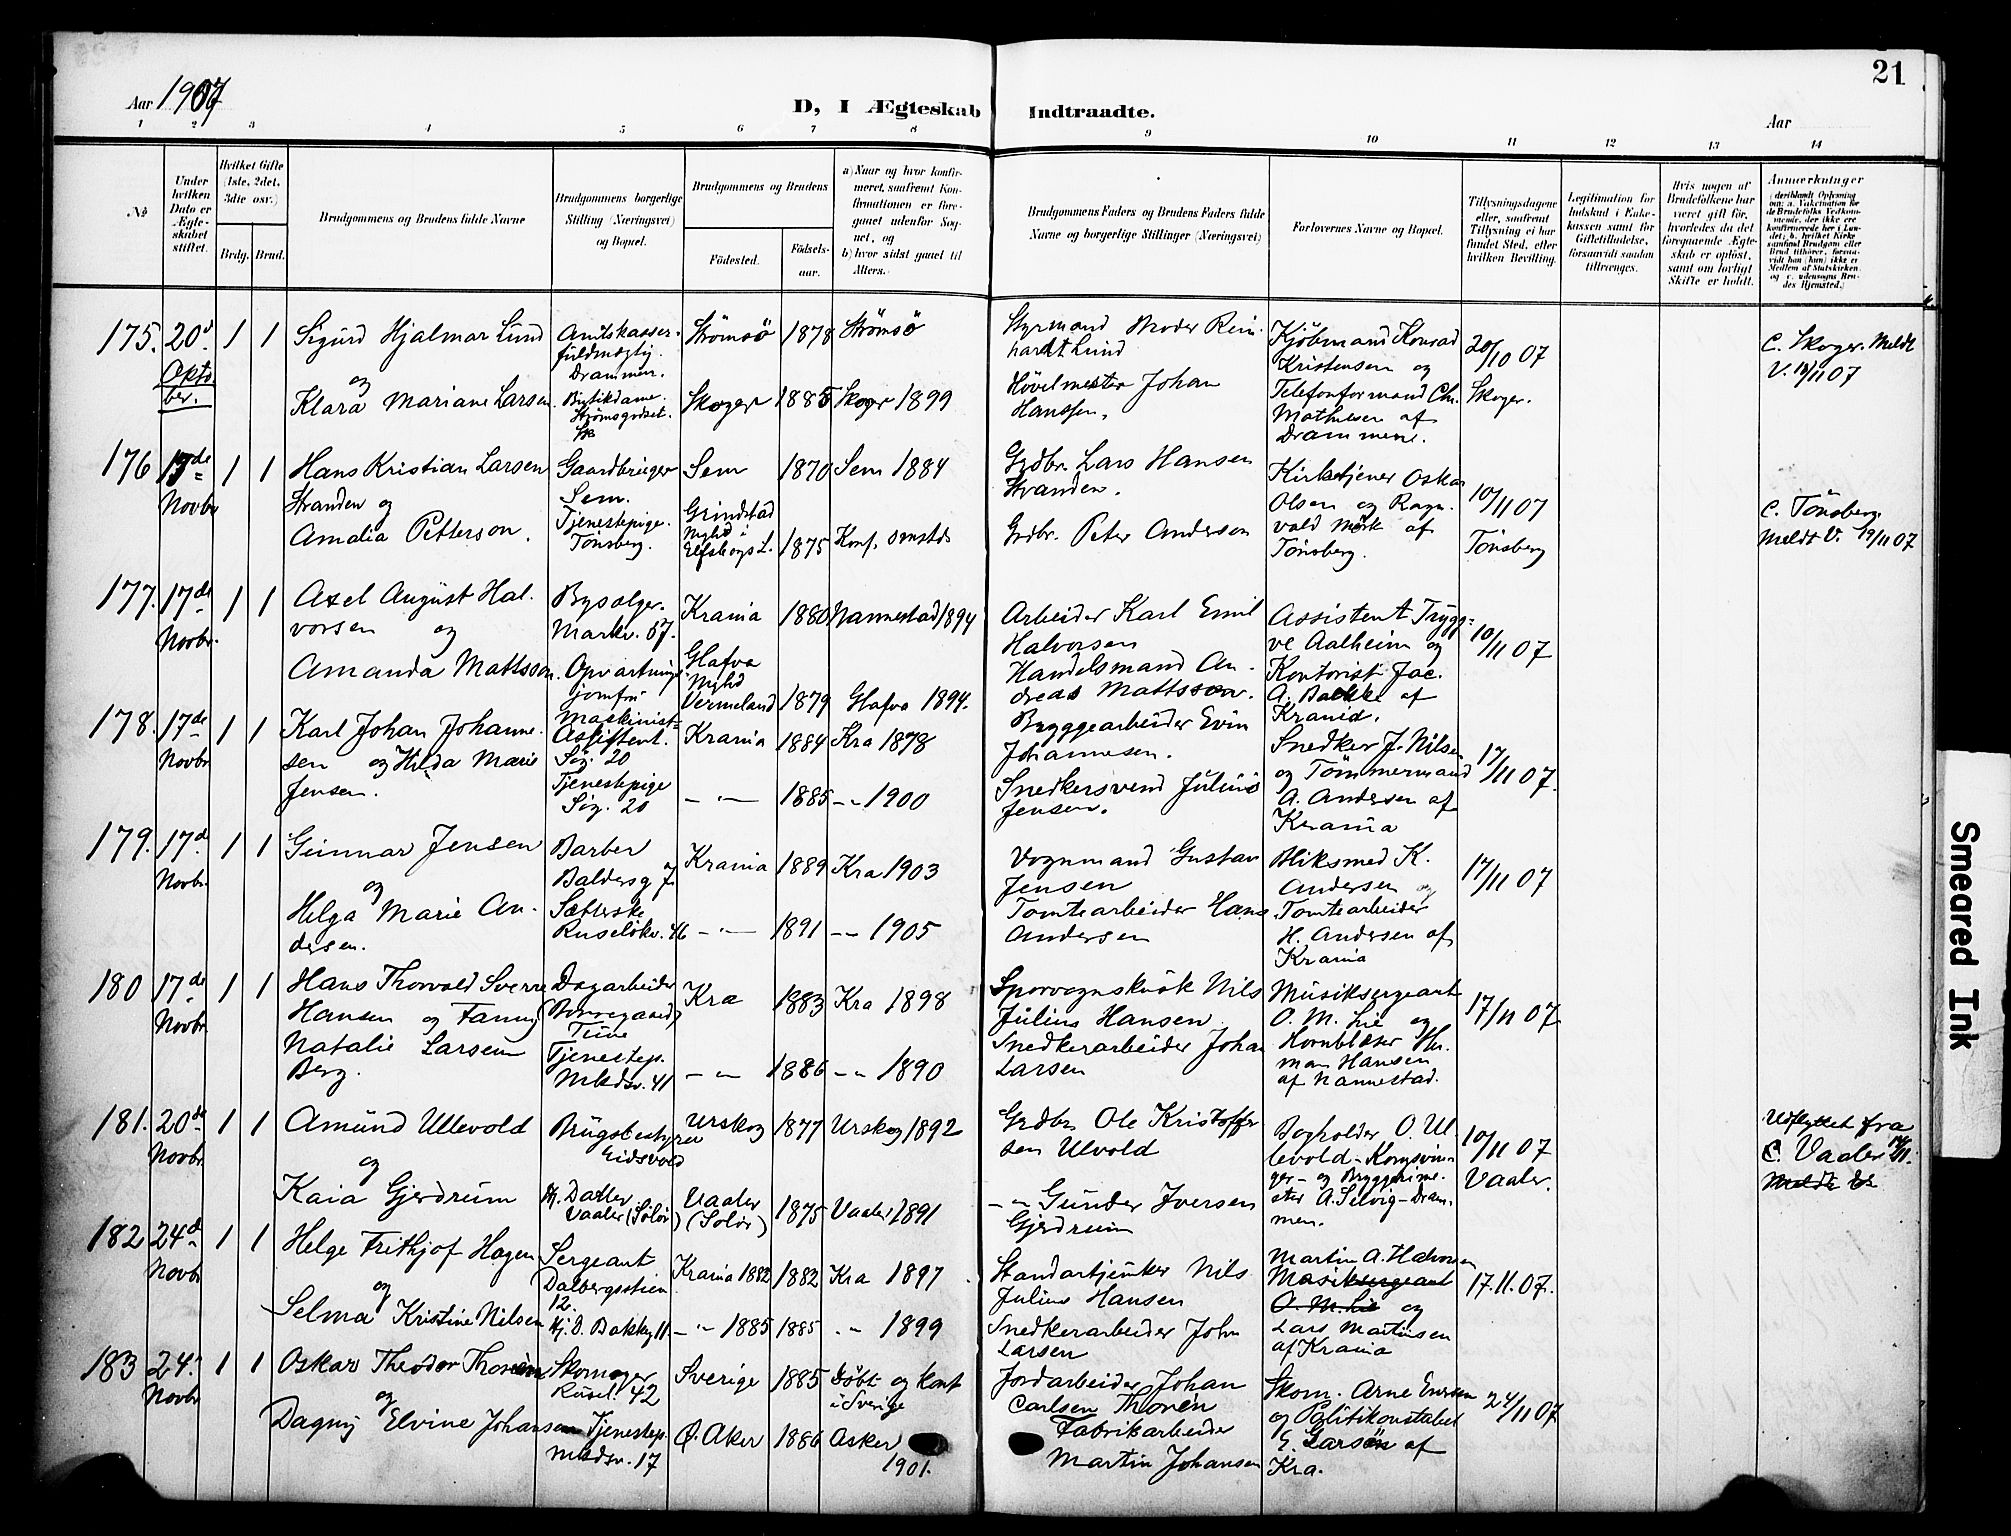 Aar 1907
D, I Ægteskab Indtraadte.
Aar
21
1 2 3 4 5 6 7 8 9 10 11 12 13 14
№
Under hvilken Dato er Ægteskabet stiftet.
Hvilket Gifte (1ste, 2det, 3die osv.)
Brdg. Brud.
Brudgommens og Brudens fulde Navne
Brudgommens borgerlige Stilling (Næringsvei) og Bopæl.
Brudgommens og Brudens
Födested.
Födselsaar.
a) Naar og hvor konfirmeret, saafremt Konfirmationen er foregaaet udenfor Sognet, og
b) hvor sidst gaaet til Alters.
Brudgommens Faders og Brudens Faders fulde Navne og borgerlige Stillinger (Næringsvei)
Forlovernes Navne og Bopæl.
Tillysningsdagene eller, saafremt Tillysning ei har fundet Sted, efter hvilken Bevilling.
Legitimation for Indskud i Enkekassen samt for Giftetilladelse, forsaavidt saadan tiltrænges.
Hvis nogen af Brudefolkene har været gift för, hvorledes da det foregaaende Ægteskab er oplöst, samt om lovligt Skifte er holdt.
Anmærkninger
175. 20d Oktober. 1 1
Sigurd Hjalmar Lund
og
Klara Mariane Larsen
Amtskasserfuldmægtig. Drammen.
Butikdame. Strømsgodset.
Strømsö 1878 Strömsö
Skoger 1885 Skoger 1899
Styrmand Moder Reinhardt Lund
Hövelmester Johan Hanssen.
Kjöbmand Konrad Kristensen og Telefonformand Chr. Mathisen af Drammen.
20/10 07 Skoger.
C. Skoger. Meldt V. 18/11 07
176 17de Novbr 1 1
Hans Kristian Larsen Stranden og
Amalia Petterson.
Gaardbruger Sem.
Tjenestepige. Tönsberg.
Sem 1870 Sem 1884
Grinstad Mylid i Elfsborgs L. 1875 Konf. smstds
Grdbr. Lars Hansen Stranden.
Grdbr. Peter Andersen
Kirketjener Oskar Olsen og Ragnvald Mörk af Tönsberg.
10/11 07 Tönsberg
C. Tönsberg. Meldt V. 19/11 07
177. 17de Novbr. 1 1
Axel August Halvorsen og
Amanda Mattsson.
Bysælger. Markv. 57.
Opvartningsjomfru
Krania 1880 Nannestad 1894
Glafva Mylid Vermeland 1879 Glafva 1894.
Arbeider Karl Emil Halvorsen
Handelsmand Andreas Mattsson.
Assistent Tryggve Aalheim og Kontorist Jac. A. Bakke af Krania.
10/11 07
178. 17de Novbr 1 1
Karl Johan Johannesen og Hilda Marie Jensen.
Maskinist-Assistent. Sig. 20
Tjenestepige Sig. 20
Krania 1884 Kra 1878
— " — 1885 — " 1900
Bryggearbeider Evin Johannesen.
Snedkersvend Julius Jensen.
Snedker J. Nilsen og Tömmermand A. Andersen af Krania
17/11 07.
179. 17de Novbr. 1 1
Gunnar Jensen
og
Helga Marie Andersen.
Barber Baldersg 7
Sætterske Ruselökv. 46
Krania 1889 Kra 1903
— " — 1891 — " 1905
Vognmand Gustav Jensen
Tomtearbeider Hans Andersen
Bliksmed K. Andersen og Tomtearbeider H. Andersen af Krania
17/11 07
180 17de Novbr 1 1
Hans Thorvald Sverre Hansen og Fanny Natalie Larsen Berg.
Dagarbeider (Borregaard) Tune
Tjenestep. Mkdsv. 41
Kra 1883 Kra 1898
— " — 1886 — " 1890
Sporvognskusk Nils Julius Hansen.
Snedkerarbeider Johan Larsen
Musiksergeant O. M. Lie og Kornblæser Herman Hansen af Nannestad.
17/11 07
181. 20de Novbr 1 1
Amund Ullevold
og
Kaia Gjerdrum
Brugsbestyrer Eidsvold
H. Datter Vaaler (Solör)
Urskog 1877 Urskog 1892
Vaaler (Solör) 1875 Vaaler 1891
Grdbr Ole Kristoffersen Ulvold
— " — Gunder Iversen Gjerdrum
Bogholder O. Ullevold - Kongsvinger - og Byggmester A. Selvig - Drammen.
10/11 07 Vaaler.
Udflyttet fra C. Vaaler 14/11.
Meldt V.
182 24d Novbr 1 1
Helge Frithjof Hagen
og
Selma Kristine Nilsen
Sergeant Dalbergsstien 12.
Hj. O. Bakkg 11
Krania 1882 1882 Kra 1897
— " 1885 1885 — " 1899
Standartjunker Nils Julius Hansen
Snedkerarbeider John Larsen
Martin A. Halvorsen Musiksergeant O. M. Lie og Lars Martinsen af Krania
17.11.07.
183 24. Novbr 1 1
Oskar Theodor Thorén
og
Dagny Elvine Johansen
Skomager Rusel. 42
Tjenestep. Mkdsv. 17
Sverige 1885 Döbt og konf i Sverige
Ø. Aker 1886 Asker 1901.
Jordarbeider Johan Carlsen Thorén
Fabrikarbeider Martin Johansen
Skom. Arne Eversen og Politikonstabel E. Larsen af Kra.
24/11 07
Smeared Ink